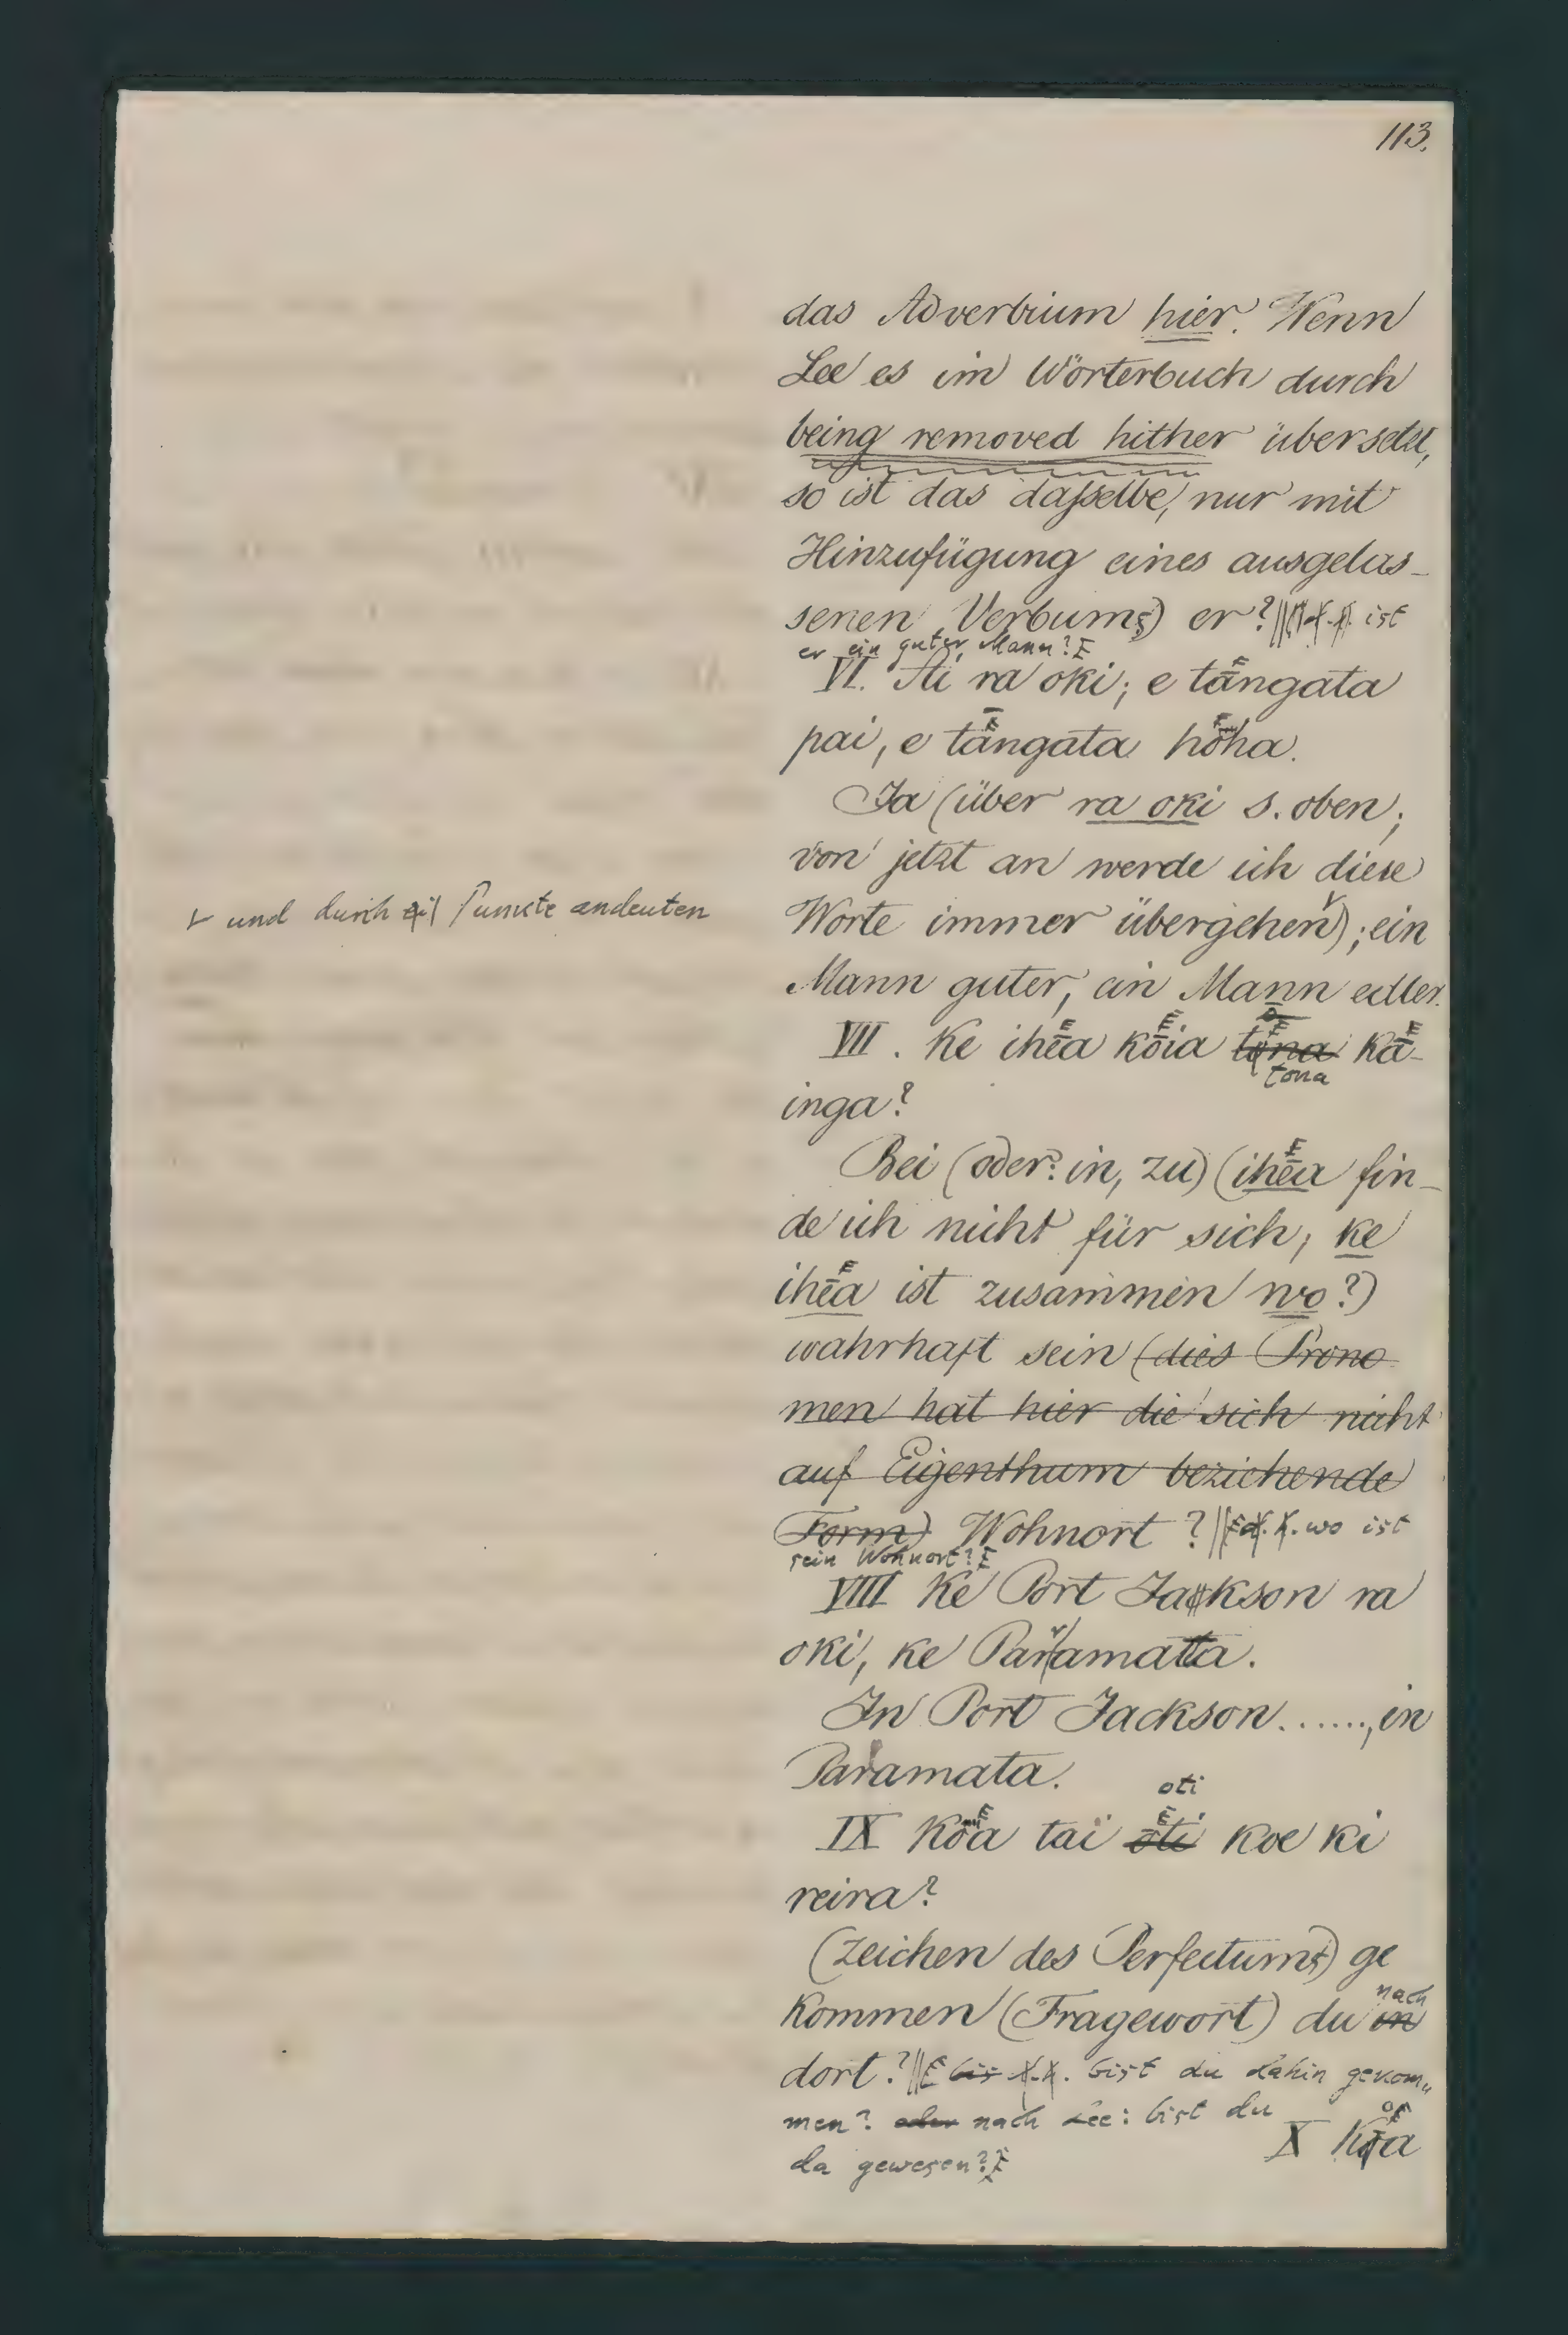 113.
das Adverbium hier. Wenn
Lee es im Wörterbuch durch
being removed hither übersetzt,
so ist das daſselbe, nur mit
Hinzufügung eines ausgelas-
senen Verbums) er? ist
er ein guter Mann?
VI. Ai ra oki; e tāngata
pai, e tāngata hōha.
Ja (über ra oki s. oben;
von jetzt an werde ich diese
und durch Punkte andeuten
Worte immer übergehen); ein
Mann guter, ein Mann edler.
VII. Ke ihēa kōia tona kā-
tona
inga?
Bei (oder: in, zu) (ihēa fin-
de ich nicht für sich; ke
ihēa ist zusammen wo?)
wahrhaft sein (dies Prono
men hat hier die sich nicht
auf Eigenthum beziehende
Form) Wohnort? wo ist
sein Wohnort?
VIII Ke Port Jakson ra
oki, ke Parramatta.
In Port Jackson......, in
Paramata.
oti
IX Kōa taï ōti koe ki
reira?
(Zeichen des Perfectums) ge
nach
kommen (Fragewort) du in
dort? bis bist du dahin gekom-
men? oder nach Lee: bist du
da gewesen?
X Kōa